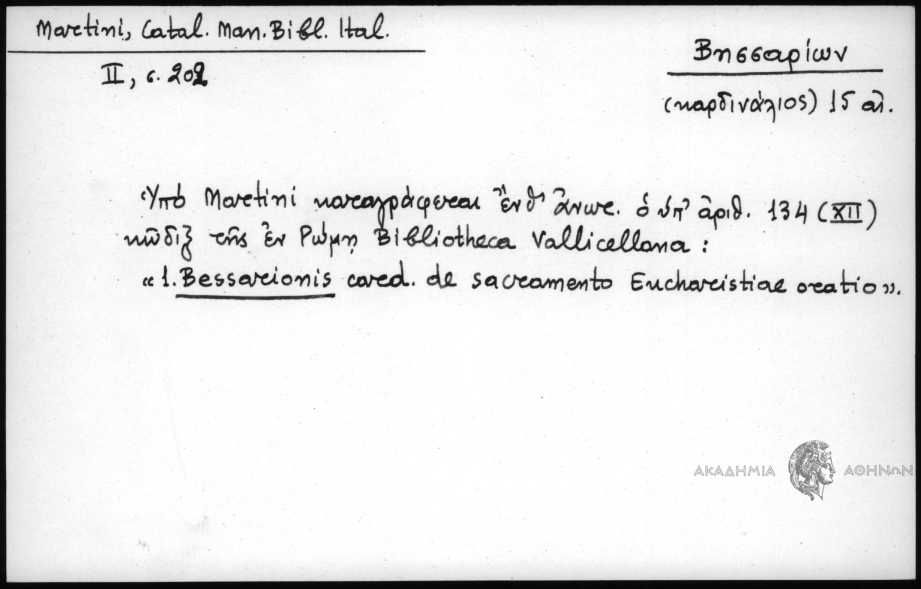 Martini, Catal. Man. Bibl. Ital.
II, σ. 202
Βησσαρίων
(καρδινάλιος) 15 αἰ.
Ὑπὸ Martini καταγράφεται ἔνθ' ἄνωτ. ὁ ὑπ' ἀριθ. 134 (XII)
κῶδιξ τῆς ἐν Ρώμῃ Bibliotheca Vallicellana :
« 1. Bessarionis card. de sacramento Eucharistiae oratio ».
ΑΚΑΔΗΜΙΑ ΑΘΗΝΩΝ